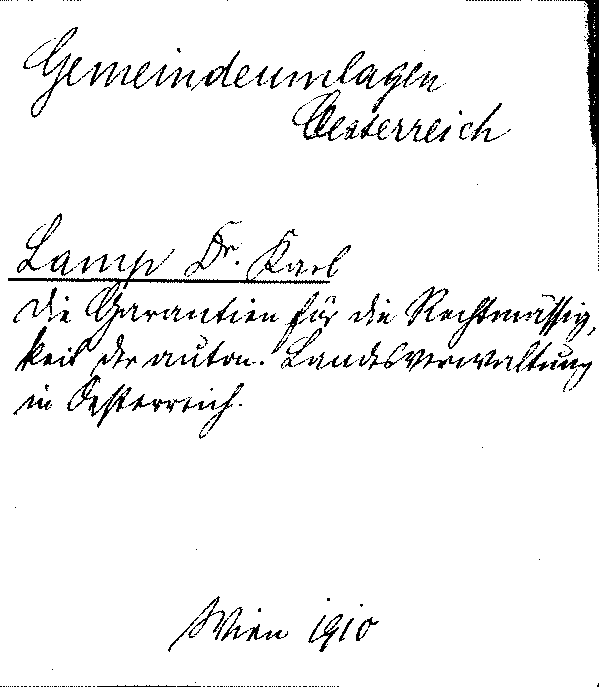 Gemeindeumlagen
Oesterreich
Lamp Dr. Karl
Die Garantien für die Rechtmässig,
keit der auton. Landesverwaltung
in Oesterreich.
Wien 1910